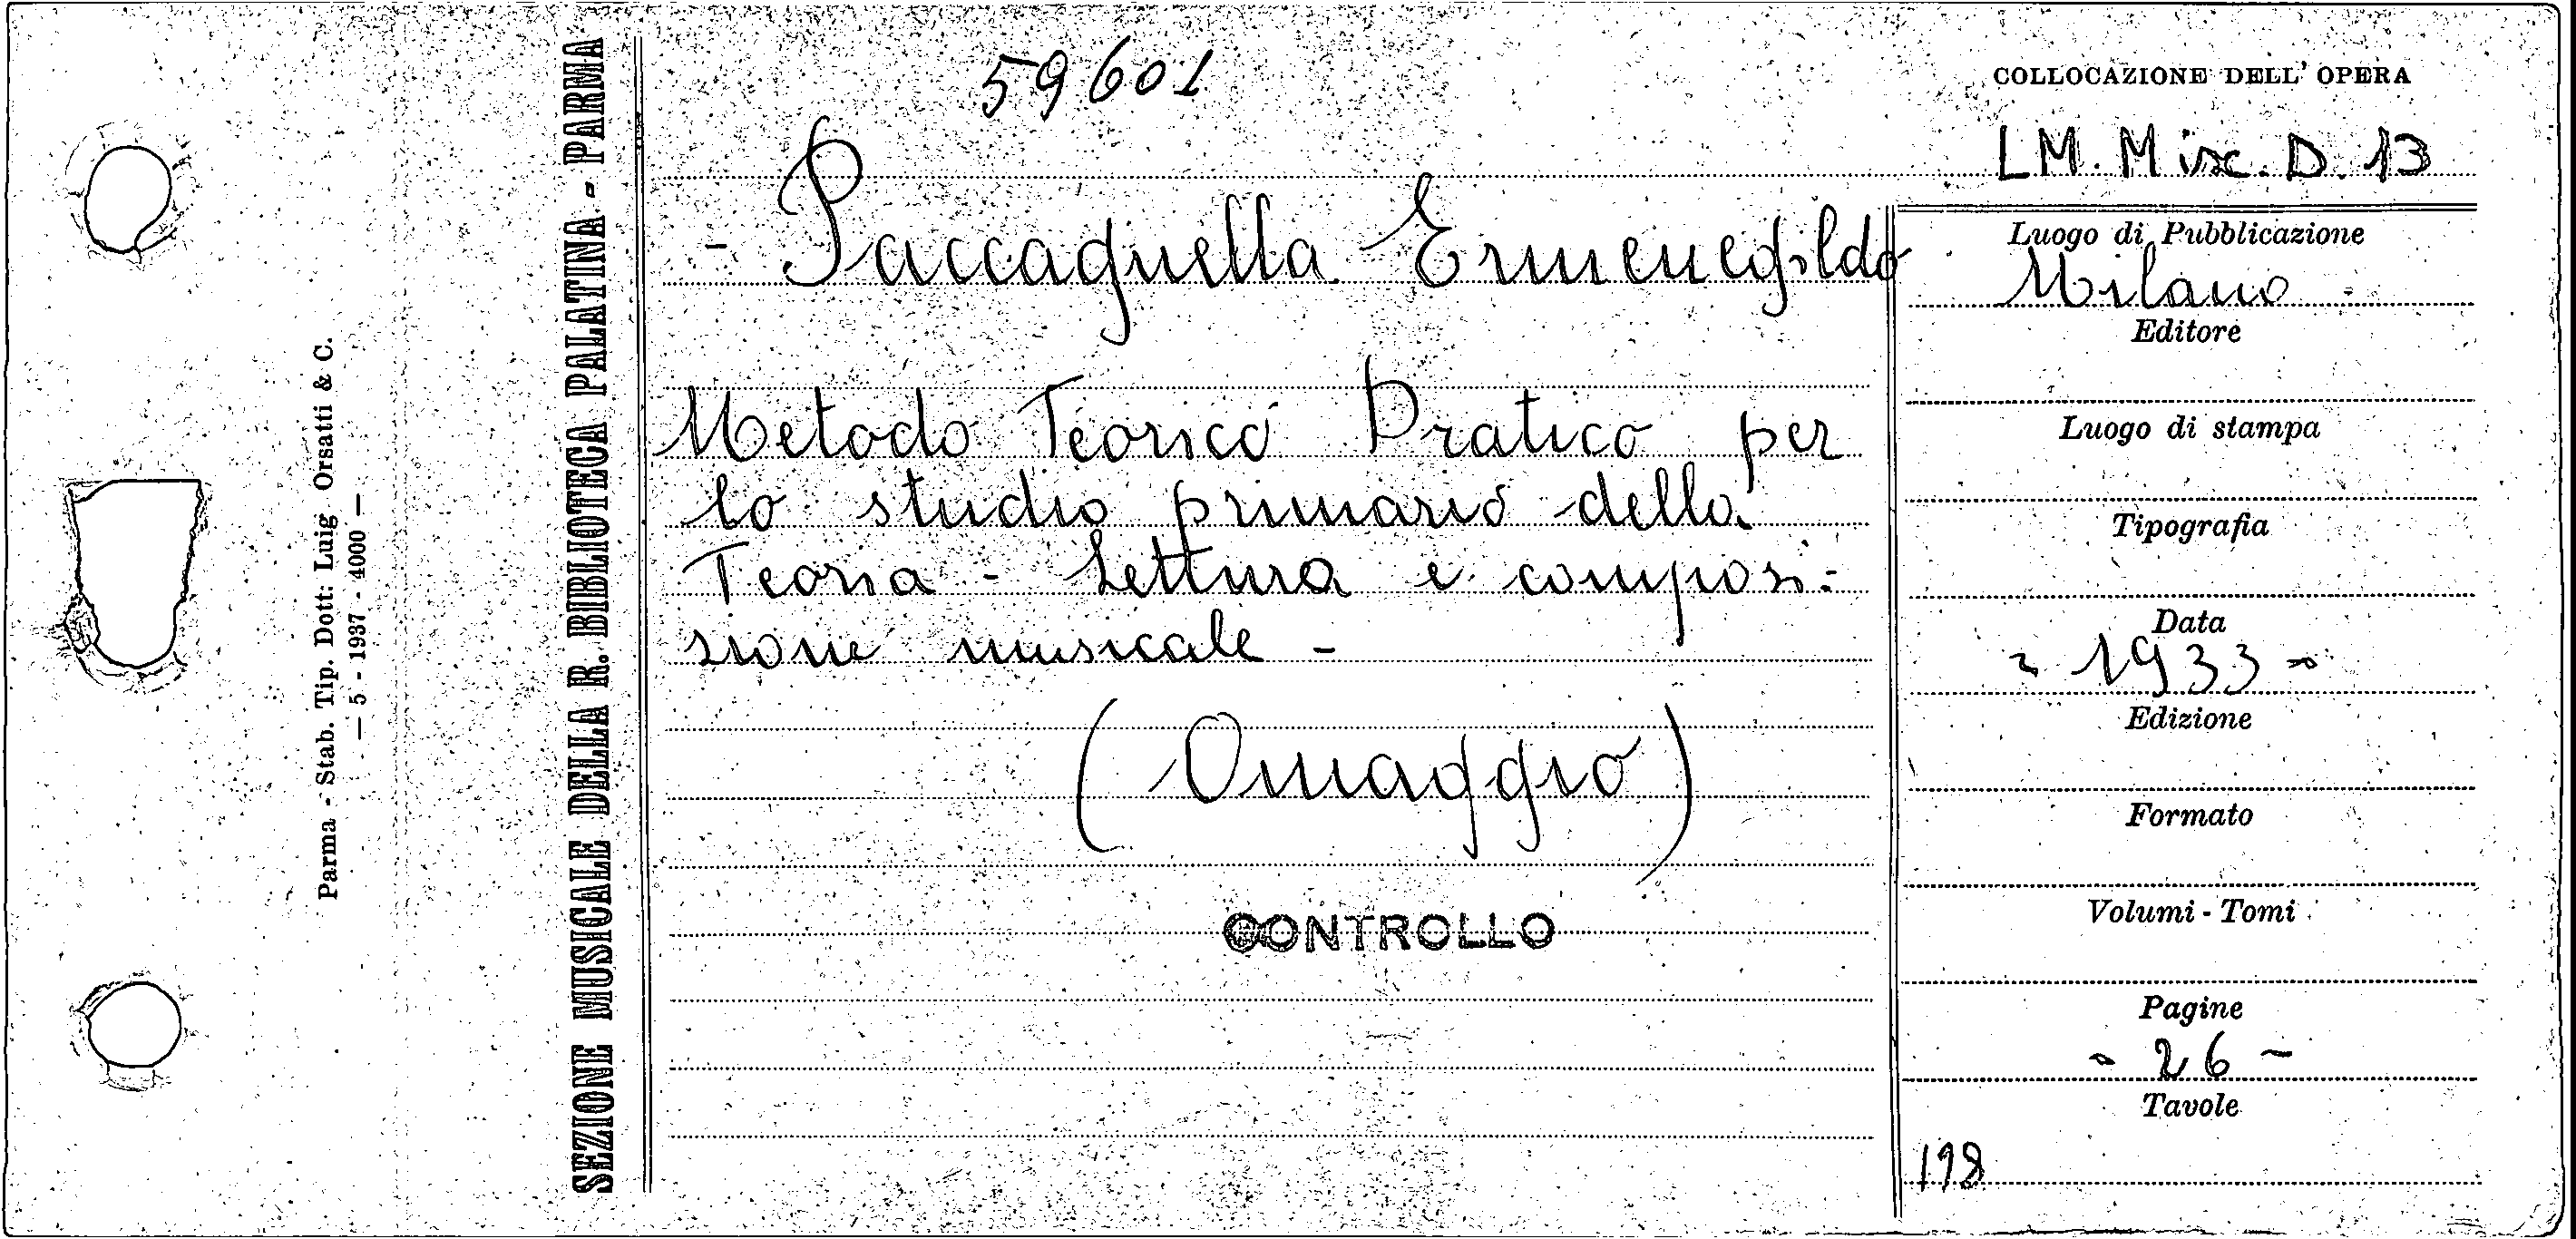 59601
COLLOCAZIONE DELL' OPERA
LM. Misc. D. 13
- Paccagnella Ermenegildo
Metodo Teorico Pratico per
lo studio primario della
Teoria - Lettura e composi-
zione musicale -
(Omaggio)
CONTROLLO
Luogo di Pubblicazione
Milano -
Editore
Luogo di stampa
Tipografia
Data
- 1933 -
Edizione
Formato
Volumi - Tomi
Pagine
- 26 -
Tavole
198
SEZIONE MUSICALE DELLA R. BIBLIOTECA PALATINA - PARMA
Parma - Stab. Tip. Dott: Luig Orsatti & C.
— 5 - 1937 - 4000 —